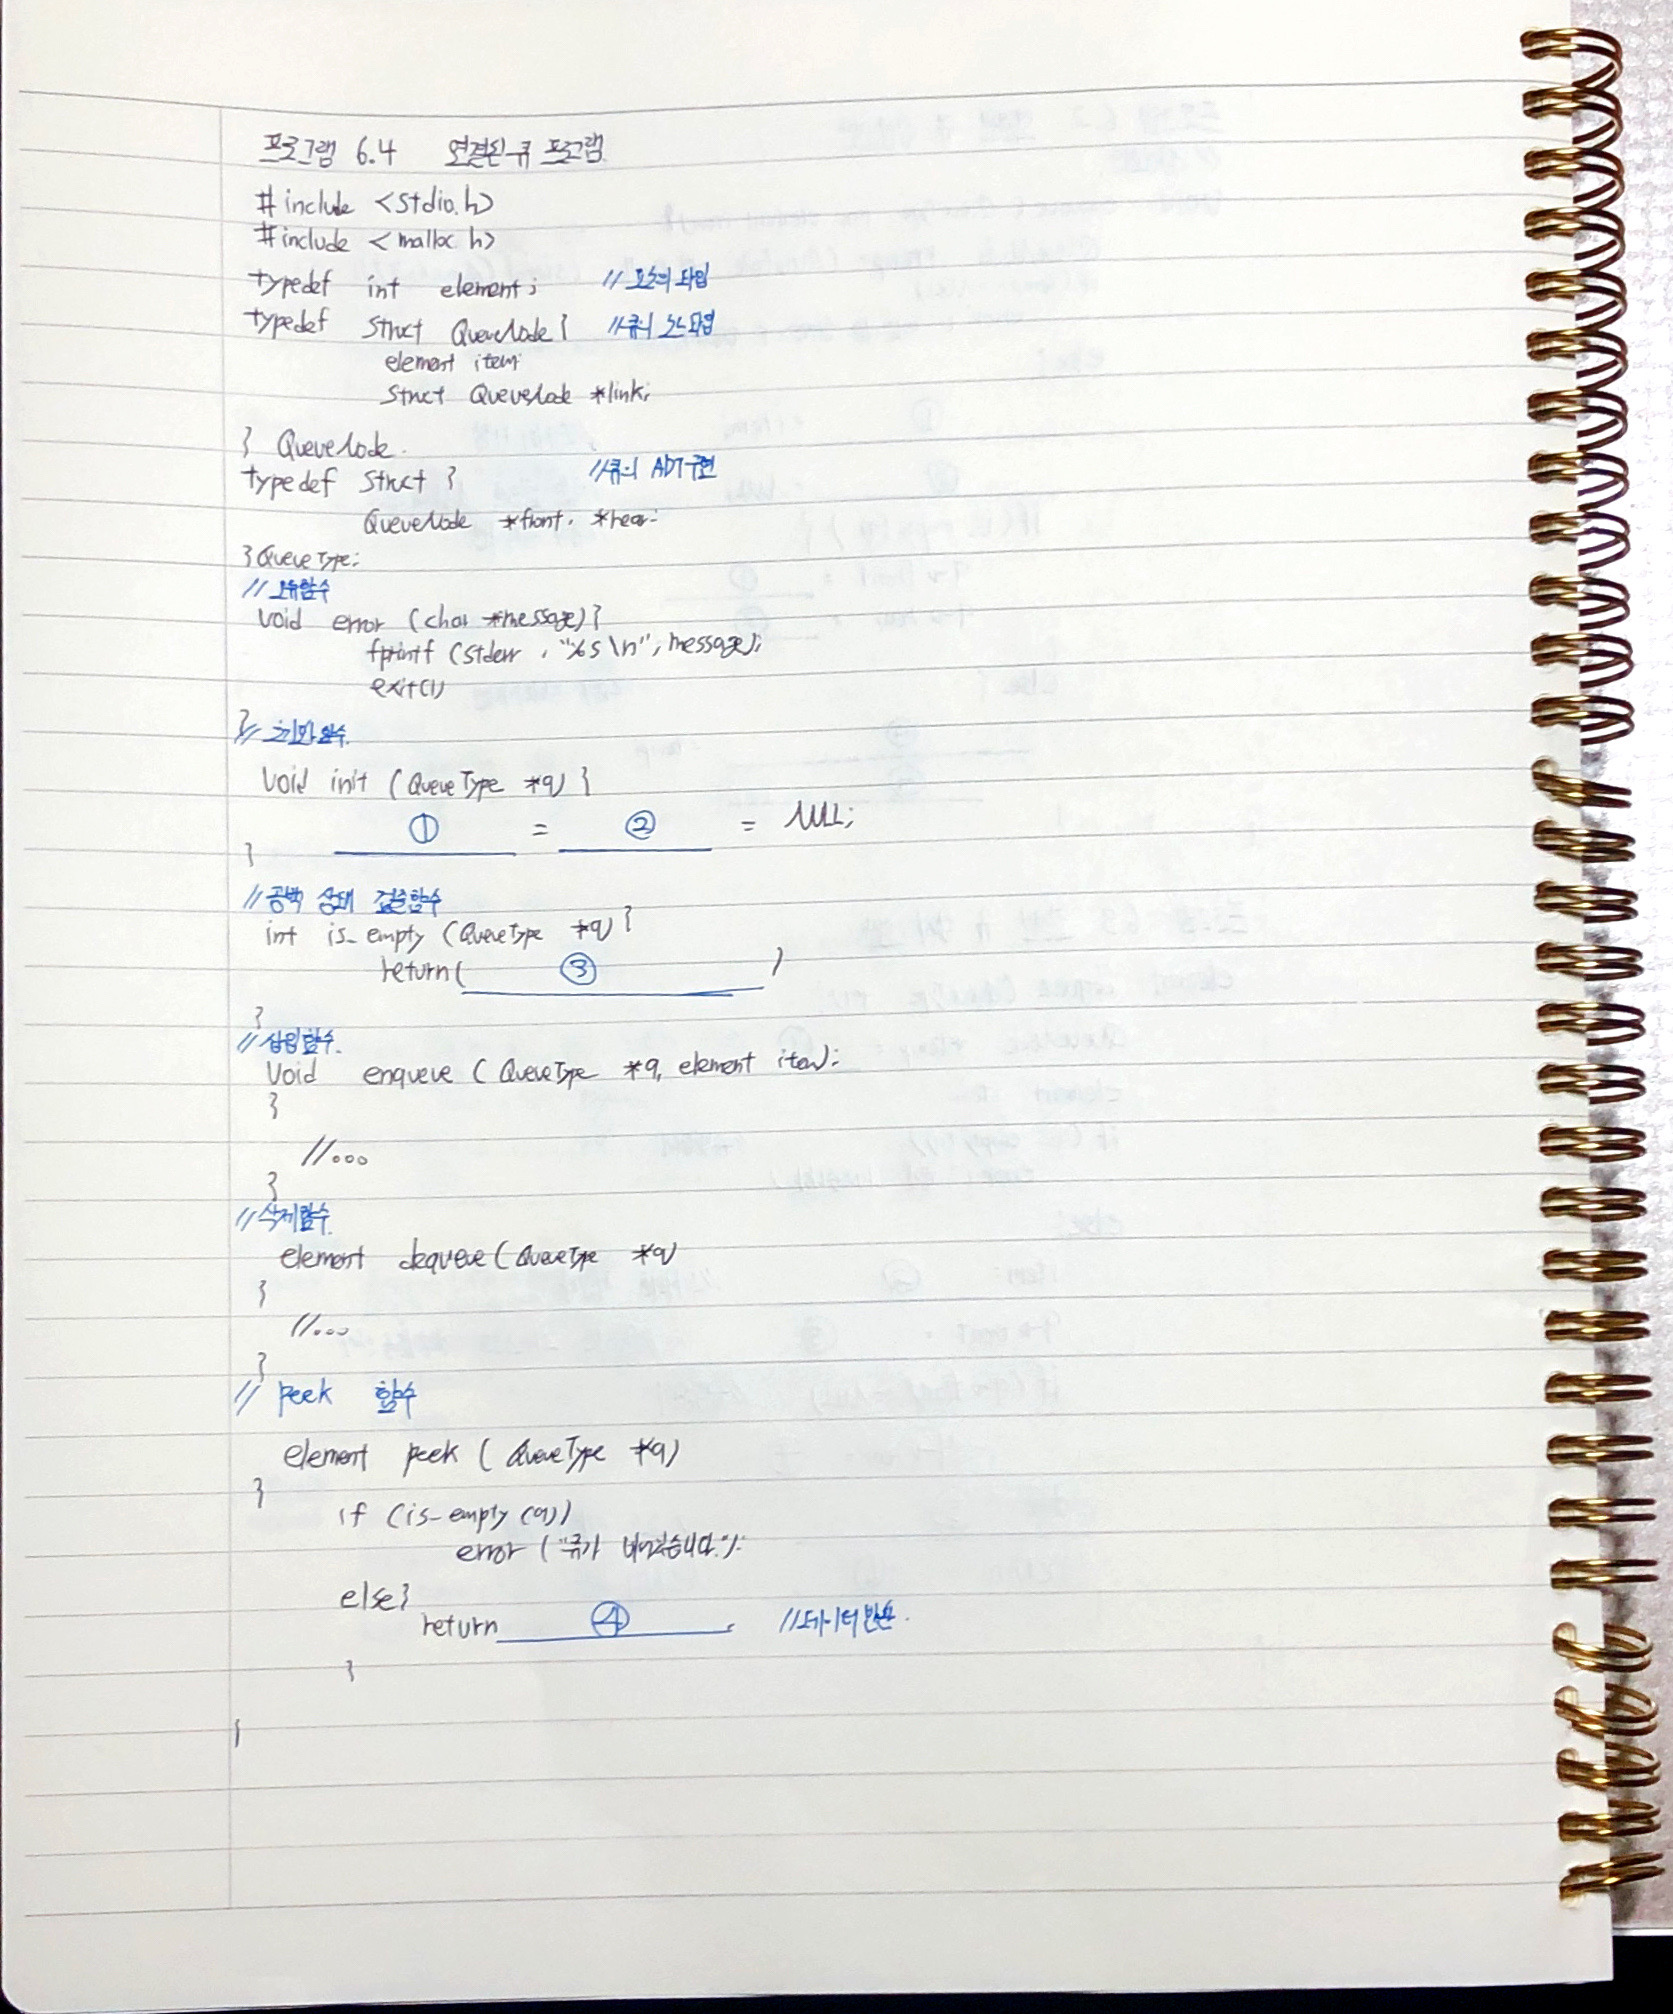 프로그램 6.4 연결된 큐 프로그램
#include <stdio.h>
#include <malloc.h>
typedef int element; // 요소의 타입
typedef struct QueueNode { // 큐의 노드 타입
element item;
struct QueueNode *link;
} QueueNode.
typedef struct { // 큐의 ADT 구현
QueueNode *front, *rear;
} QueueType;
// 오류 함수
void error (char *message) {
fprintf (stderr, "%s\n", message);
exit(1)
}
// 초기화 함수.
void init (QueueType *q) {
① = ② = NULL;
}
// 공백 상태 검출 함수
int is_empty (QueueType *q) {
return( ③ )
}
// 삽입 함수.
void enqueue ( QueueType *q, element item);
}
//...
}
// 삭제 함수.
element dequeue ( QueueType *q)
}
//...
}
// peek 함수
element peek ( QueueType *q)
}
if (is_empty (q))
error ("큐가 비어있습니다.");
else}
return ④ ; // 데이터 반환.
}
}